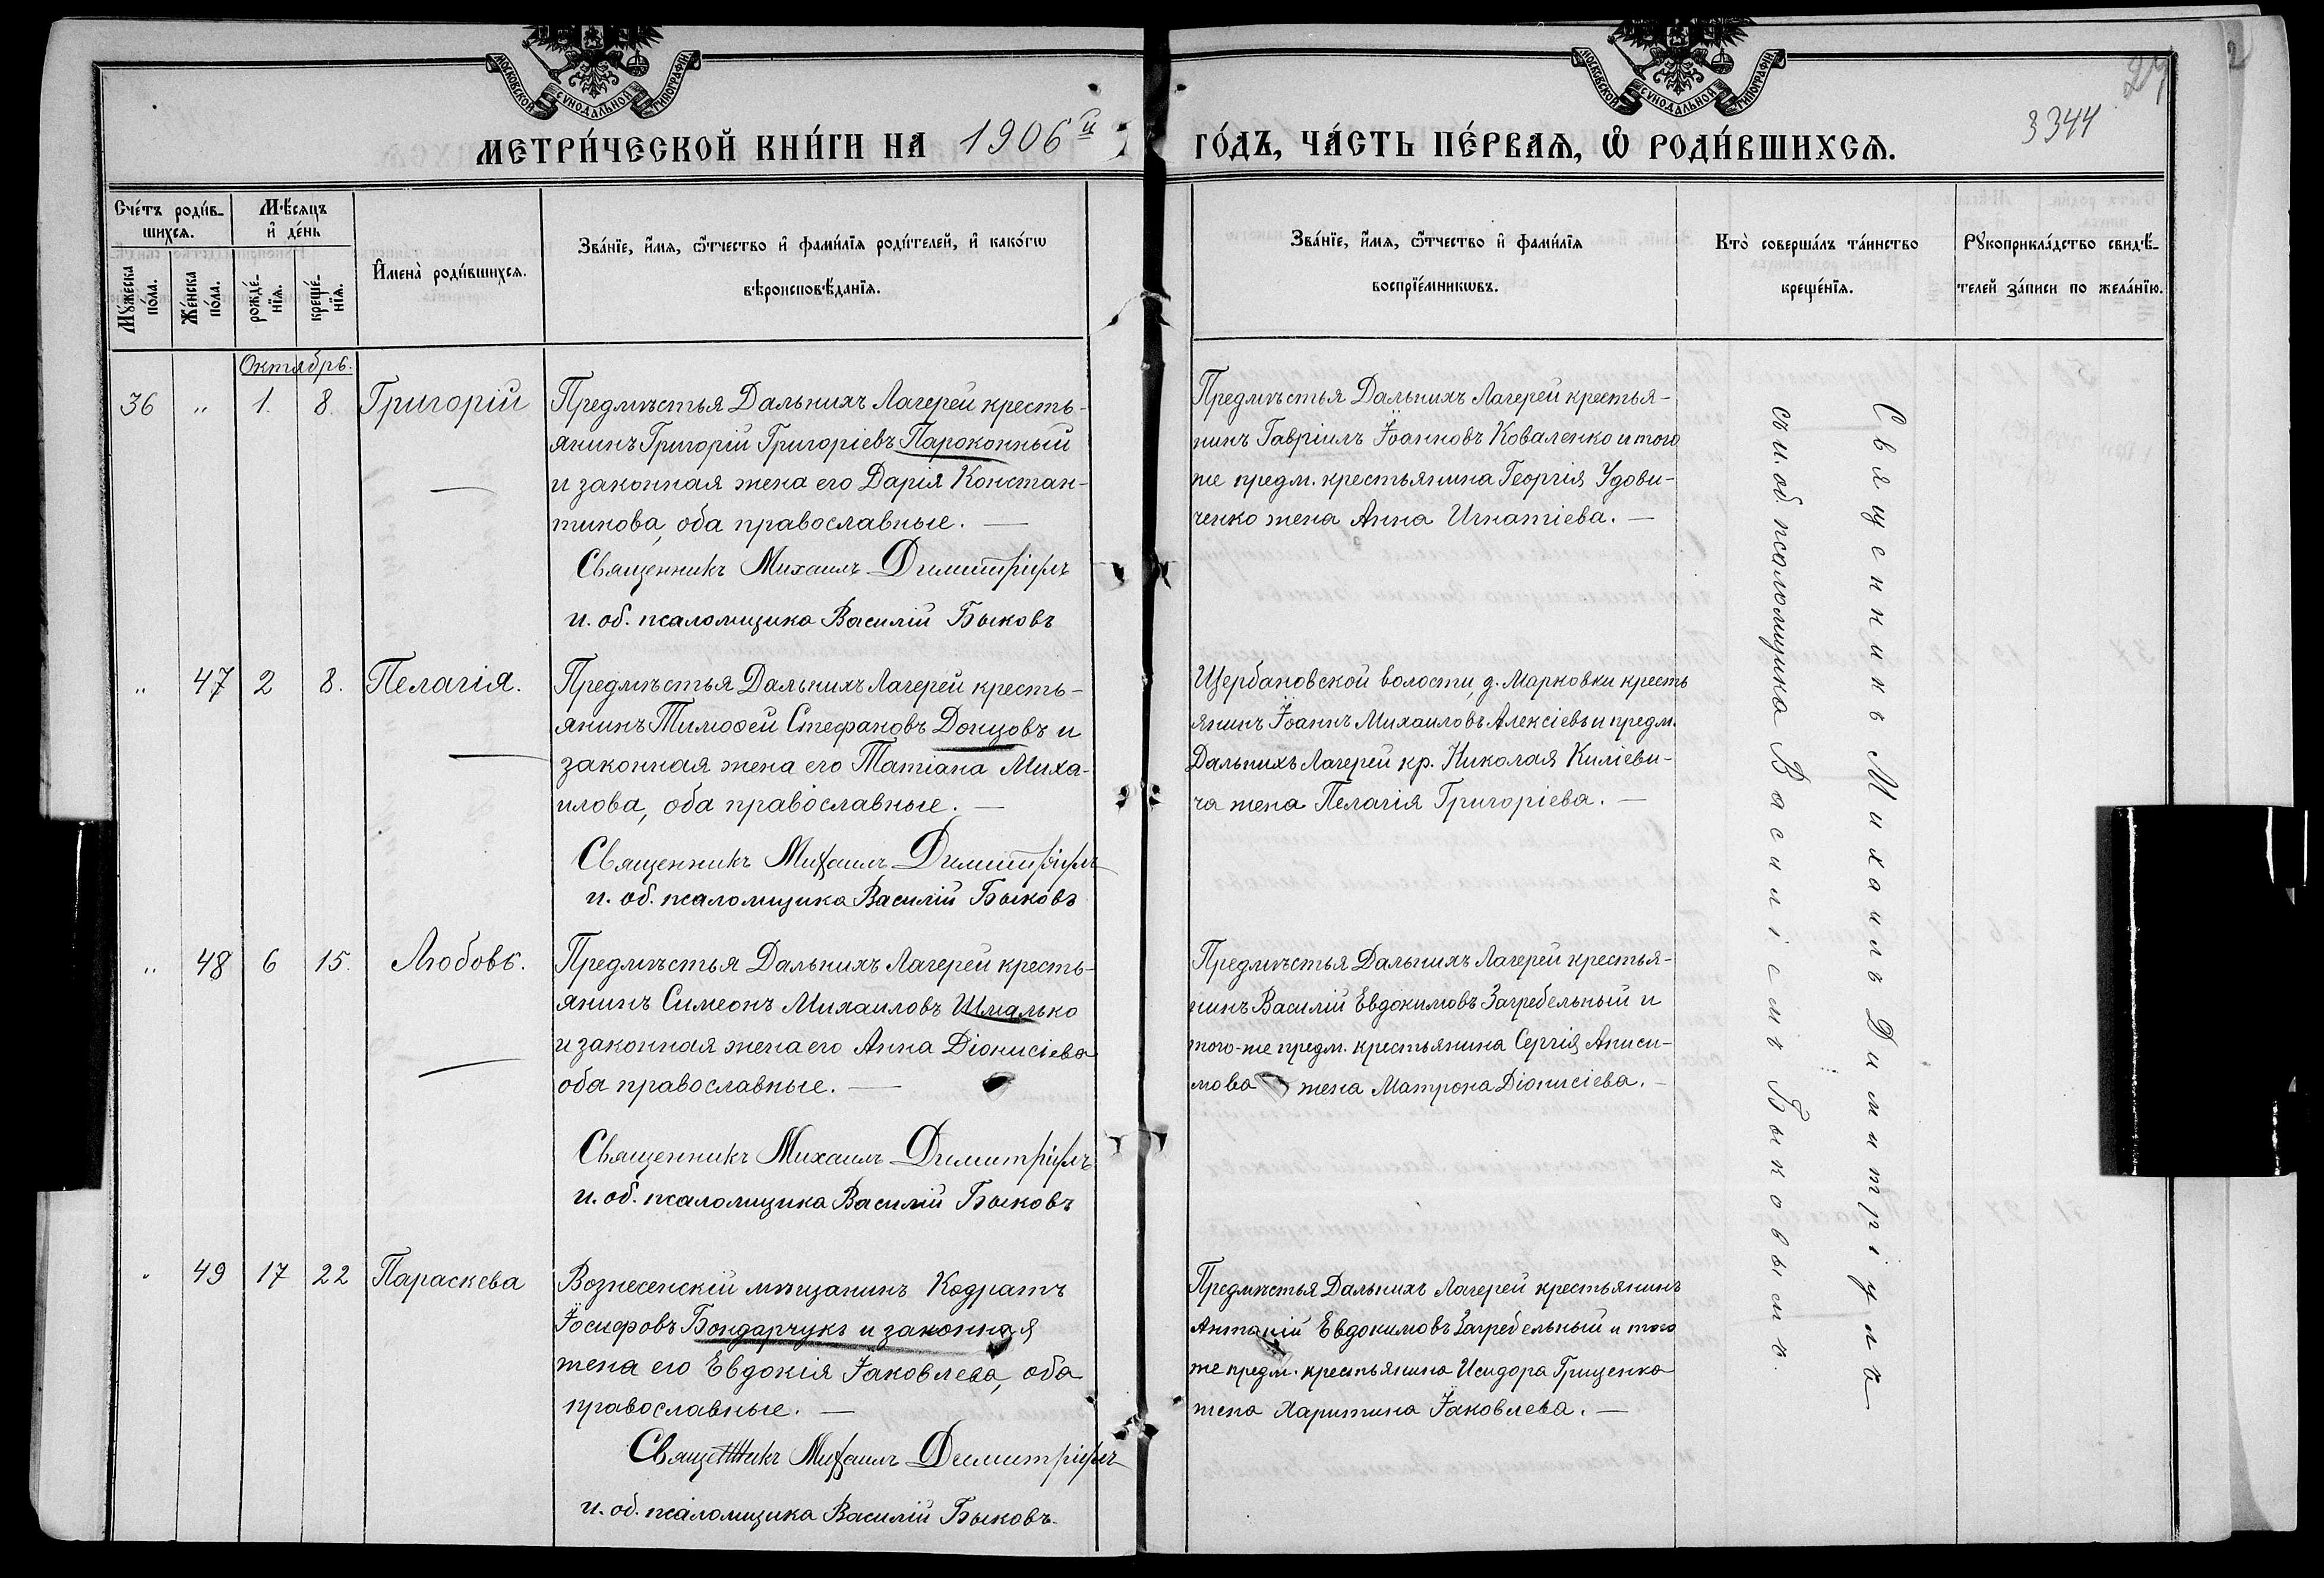 МОСКОВСКОЙ СѴНОДАЛЬНОЙ ТИПОГРАФІИ
МОСКОВСКОЙ СѴНОДАЛЬНОЙ ТИПОГРАФІИ
27
2
3344
МЕТРИ́ЧЕСКОЙ КНИ́ГИ НА 1906й
ГО́ДЪ, ЧА́СТЬ ПЕ́РВАѦ, Ѡ РОДИ́ВШИХСѦ.
Сче́тъ роди́в-
шихсѧ.
Мѣ́сѧцъ
и҆ де́нь
Мꙋ́жеска
по́ла.
Же́нска
по́ла.
рожде́-
нїѧ.
креще́-
нїѧ.
И҆мена̀ роди́вшихсѧ.
Зва́нїе, и҆́мѧ, ѻ҆́тчество и҆ фами́лїѧ роди́телей, и҆ како́гѡ
вѣроисповѣ́данїѧ.
Зва́нїе, и҆́мѧ, ѻ҆́тчество и҆ фами́лїѧ
воспрїе́мникѡвъ.
Кто̀ соверша́лъ та́инство
креще́нїѧ.
Рꙋкоприкла́дство свидѣ́-
телей за́писи по жела́нїю.
Октябрь.
36 " 1. 8. Григорій
Предмѣстья Дальнихъ Лагерей кресть-
янинъ Григорій Григоріевъ Пароконный
и законная жена его Дарія Констан-
тинова, оба православные. —
Священникъ Михаилъ Димитріулъ
и. об. псаломщика Василій Быковъ
Предмѣстья Дальнихъ Лагерей крестья-
нинъ Гавріилъ Іоанновъ Коваленко и того
же предм. крестьянина Георгія Удови-
ченко жена Анна Игнатіева. —
" 47 2 8. Пелагія.
Предмѣстья Дальнихъ Лагерей кресть-
янинъ Тимоѳей Стефановъ Донцовъ и
законная жена его Татіана Миха-
илова, оба православные. —
Священникъ Михаилъ Димитріулъ
и. об. псаломщика Василій Быковъ
Щербановской волости, д. Марковки кресть
янинъ Іоаннъ Михаиловъ Алексіевъ и предм.
Дальнихъ Лагерей кр. Николая Киліеви-
ча жена Пелагія Григоріева. —
" 48 6 15. Любовь.
Предмѣстья Дальнихъ Лагерей кресть-
янинъ Симеонъ Михаиловъ Шмалько
и законная жена его Анна Діонисіева
оба православные. —
Священникъ Михаилъ Димитріулъ
и. об. псаломщика Василій Быковъ
Предмѣстья Дальнихъ Лагерей крестья-
нинъ Василій Евдокимовъ Загребельный и
того-же предм. крестьянина Сергія Аниси-
мова жена Матрона Діонисіева. —
" 49 17 22 Параскева
Вознесенскій мѣщанинъ Кодратъ
Іосифовъ Бондарчукъ и законная
жена его Евдокія Іаковлева, оба
православные. —
Священникъ Михаилъ Димитріулъ
и. об. псаломщика Василій Быковъ.
Предмѣстья Дальнихъ Лагерей крестьянинъ
Антоній Евдокимовъ Загребельный и того
же предм. крестьянина Исидора Грищенко
жена Харитина Іаковлева. —
Священникъ Михаилъ Димитріулъ
съ и. об. псаломщика Василіемъ Быковымъ.